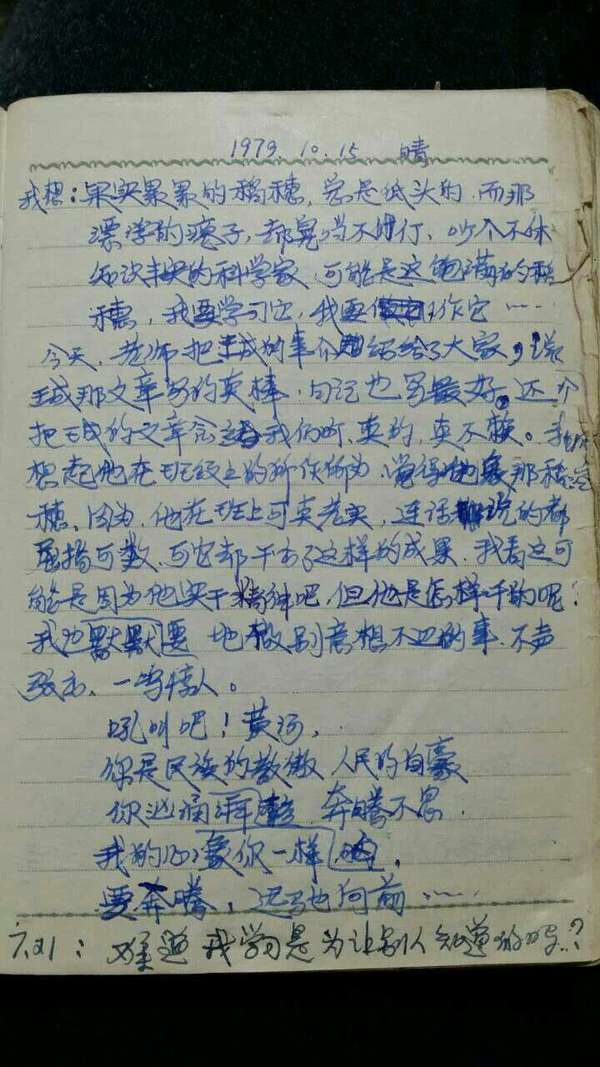 1979. 10. 15 晴
我想：果实累累的稻穗，总是低头的，而那
漂浮的瘪子，却晃当不停，吵个不休
知识丰实的科学家，可能是这饱满的稻
穗，我要学习它，我要作它……
今天，老师把王成的事介绍给了大家，说
王成那文章写的真棒，句话也写最好。还
把王成的文章念给我们听，真的，真不赖。我
想起他在班级上的所作所为，觉得他象那稻
穗，因为，他在班上可真老实，连话说的都
屈指可数，可它却干出了这样的成果，我看这可
能是因为他实干精神吧，但他是怎样干的呢？
我也要默默地做别意想不 的事，不声
张，一鸣惊人。
吼叫吧！黄河，
你是民族的 人民的自豪
你汹涌 奔腾不息
我的心，象你一样，
要奔腾，迅驰向前……
六.21：难道我学习是为让别人知道的吗？